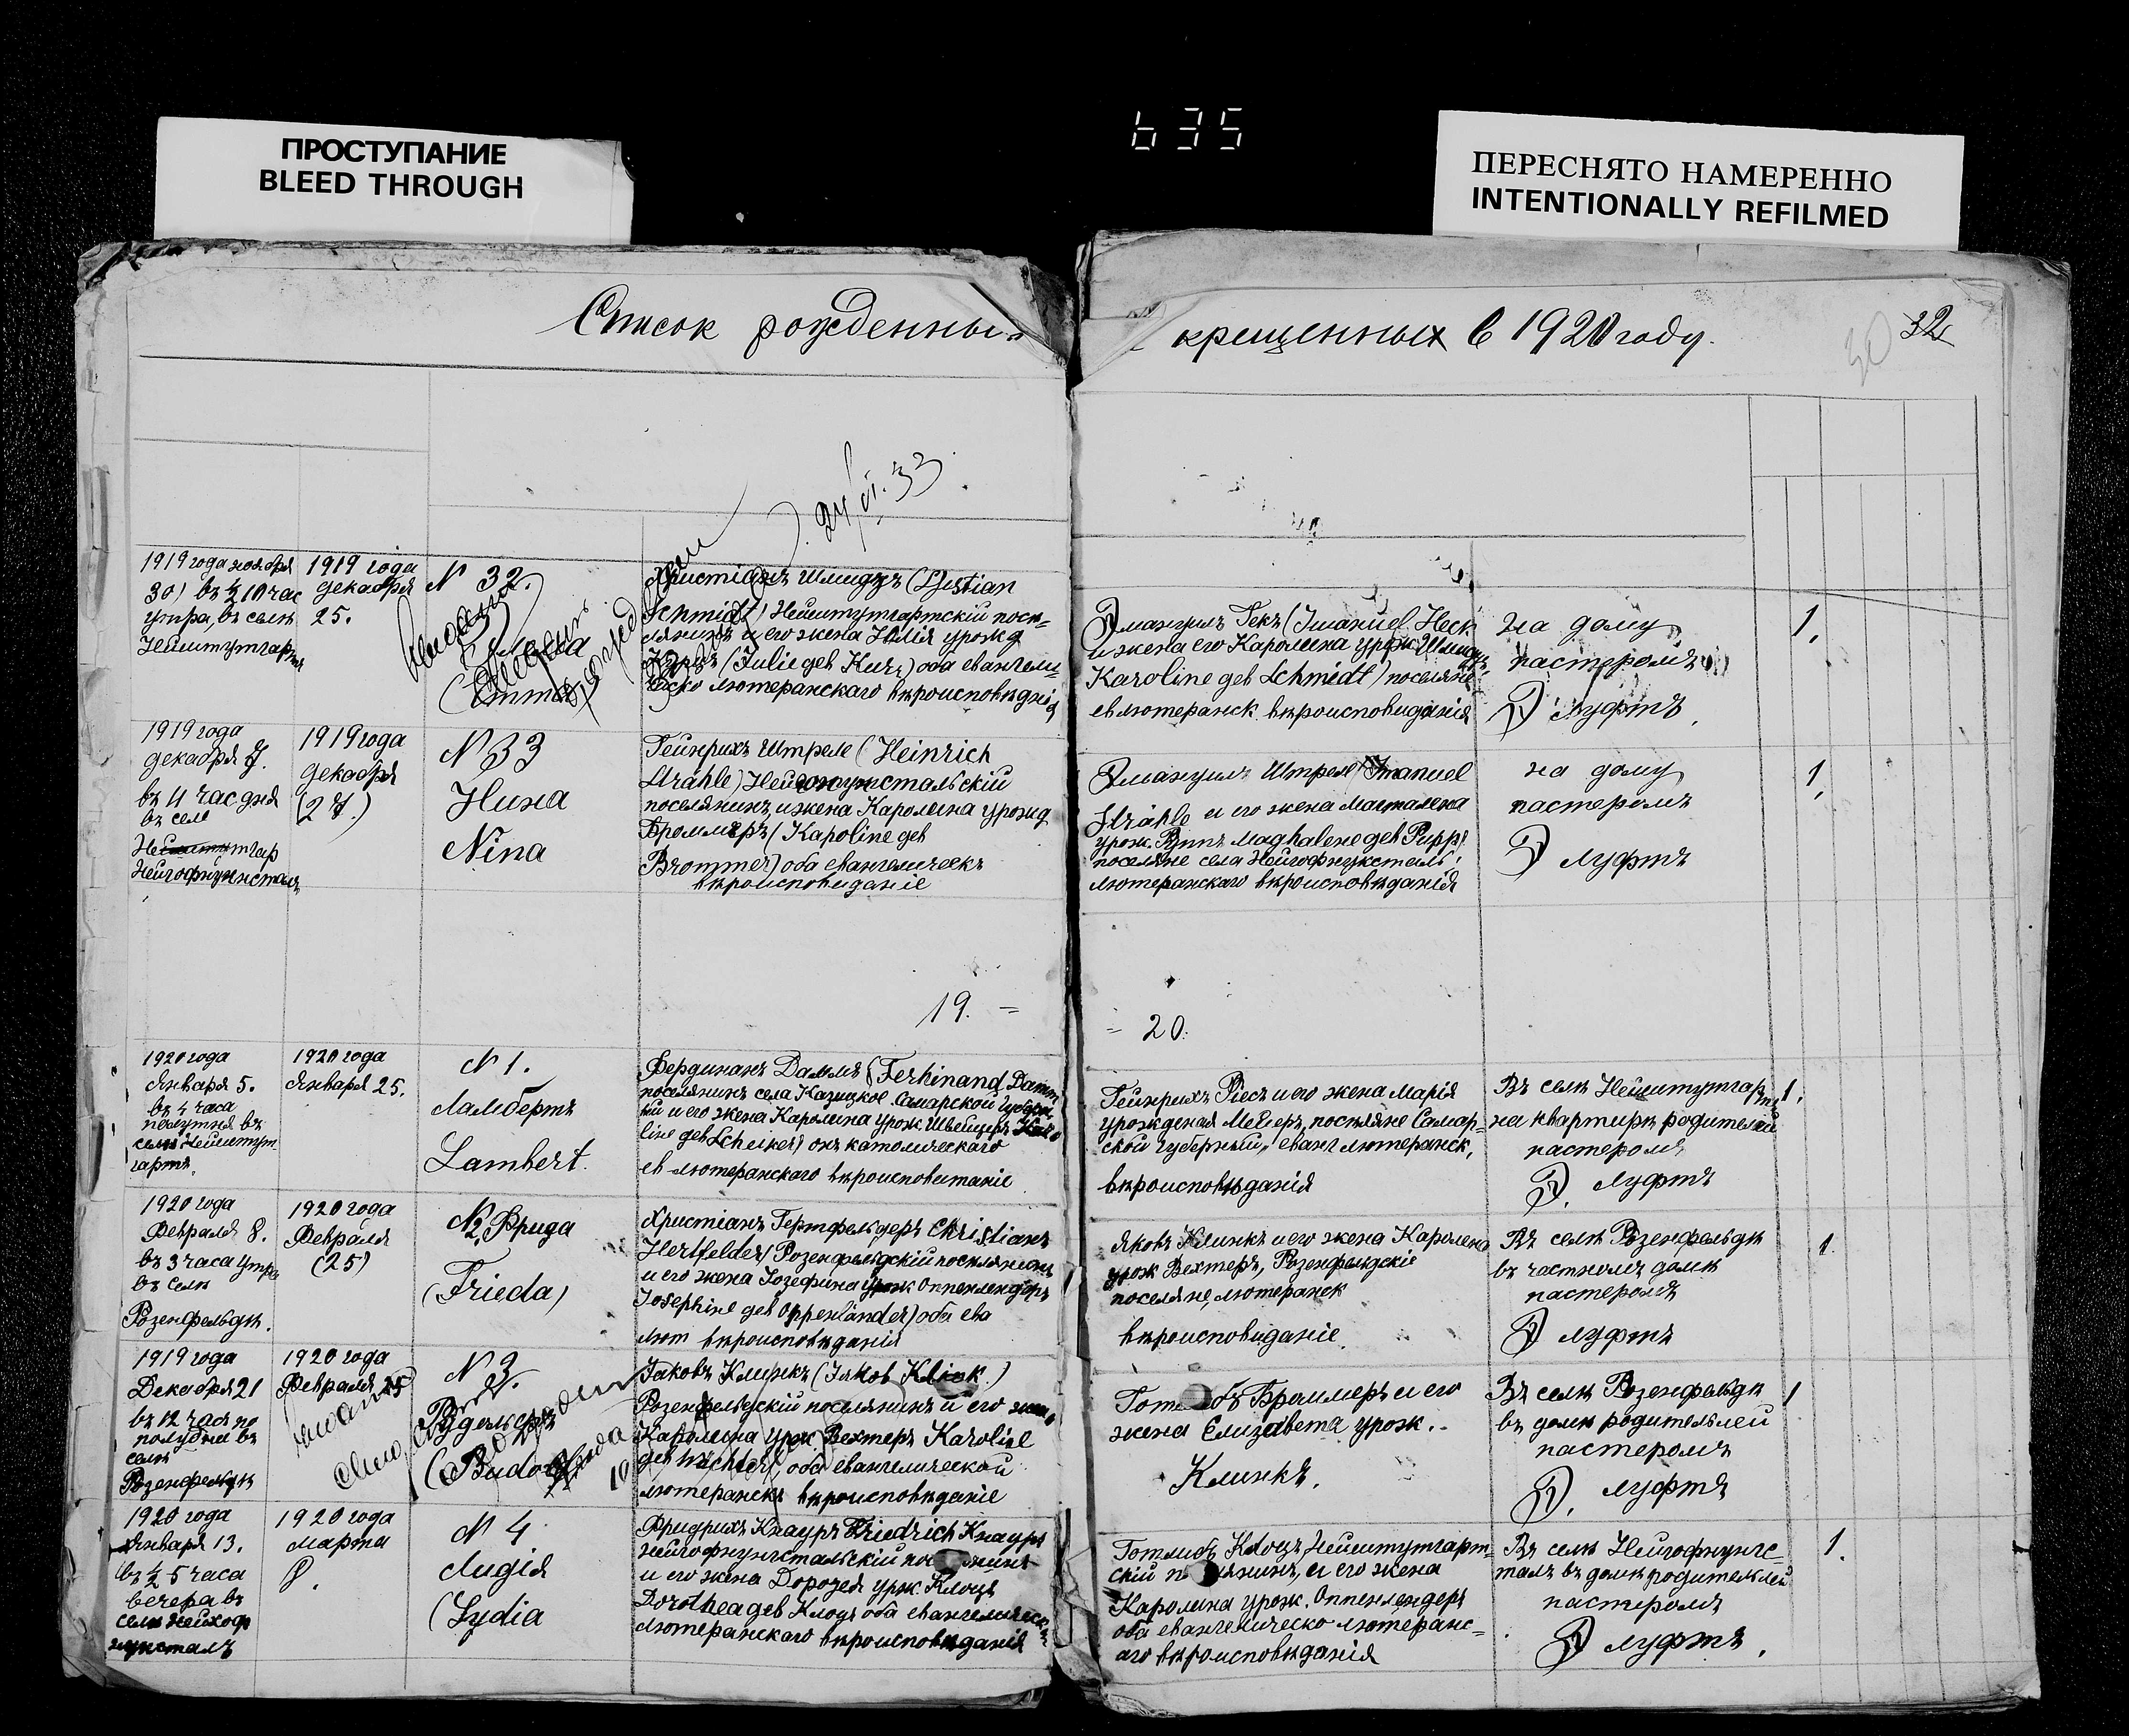 ПРОСТУПАНИЕ
BLEED THROUGH
635
ПЕРЕСНЯТО НАМЕРЕННО
INTENTIONALLY REFILMED
Список рожденны
крещенных в 1920 году.
30
32
24/VI. 33
1919 года ноября
30) въ ½ 10 час
утра, въ селѣ
Нейштутгартъ
1919 года
декабря
25.
N 32.
(Emma)
Христіанъ Шмидтъ (
Schmidt) Нейштутгартскій посе-
лянинъ и его жена Юлія урожд
(Julie geb Kurz) оба евангели-
ческо лютеранскаго вѣроисповѣданія
Эмануилъ Гекъ (Imanuel Heck
и жена его Каролина урож Шмидтъ
Karoline geb Schmidt) поселяне
ев лютеранск. вѣроисповиданія
на дому
пасторомъ
Д Луфтъ
1.
1919 года
декабря 7.
въ 4 час дня
въ селе
Нейгофнунгсталь
1919 года
декабря
(27.)
N 33
Нина
Nina
Гейнрихъ Штреле (Heinrich
Strähle) Нейгофнунгстальскій
поселянинъ, и жена Каролина урожд
Броммеръ (Karoline geb
Brommer) оба евангелическ
вѣроисповиданіе
Эмануилъ Штреле Imanuel
Strähle и его жена Магталена
урож. Руппъ Maghalene geb Rupp)
поселяне села Нейгофнунгсталь
лютеранскаго вѣроисповѣданія
на дому
пасторомъ
Д Луфтъ
1.
19. =
= 20.
1920 года
Января 5.
въ 4 часа
въ
селѣ Нейштут-
гартъ.
1920 года
Января 25.
N 1.
Ламбертъ
Lambert.
Фердинанъ Даммъ (Ferhinand Damm
поселянинъ села Казицкое Самарской Губерн
іи и его жена Каролина урож. Швейцеръ Karo
line geb онъ католическаго
ев лютеранскаго вѣроисповитаніе
Гейнрихъ Рiесъ и его жена Марія
урожденая Мейеръ, поселяне Самар-
ской губерніи, еванг лютеранск,
вѣроисповѣданія
Въ селѣ Нейштутгартъ
на квартирѣ родителей
пасторомъ
Д. Луфтъ
1.
1920 года
Февраля 8.
въ 3 часа утра
въ селѣ
Розенфельдѣ.
1920 года
Февраля
(25)
N 2. Фрида
(Frieda)
Христіанъ Гертфельдеръ Christianъ
Hertfelder) Розенфельдскій поселянинъ
и его жена Іозефина урож Оппенлендеръ
Josephine geb Oppenländer) оба ева
лют вѣроисповѣданія
Яковъ Клинкъ и его жена Каролена
урож Вехтеръ, Розенфельдскіе
поселяне, лютеранск
вѣроисповиданіе
Въ селѣ Розенфельдѣ
въ частномъ домѣ
пасторомъ
Д Луфтъ
1.
1919 года
Декабря 21
въ 12 часа по
полудни въ
селѣ
Розенфельдѣ
1920 года
Февраля 25
N 3.
Рудольфъ
(Rudolf
Іаковъ Клинкъ (Jakob Klink.)
Розенфельдскій поселянинъ и его жена
Каролина урож Вехтеръ Karoline
geb Wächter), оба евангелической
лютеранскъ вѣроисповѣданіе
Готлибъ Броммеръ и его
жена Елизавета урож. -
Клинкъ.
Въ селѣ Розенфельдѣ
въ домѣ родителей
пасторомъ
Д. Луфтъ
1
1920 года
Января 13.
въ ½ 5 часа
вечера въ
селѣ Нейгоф
нунгсталь
1920 года
Марта
8.
N 4
Лидія
(Lydia
Фридрихъ Кнауръ Friedrich Кнауръ
нейгофнунгстальскій поселянинъ
и его жена Доротея урж. Клоцъ
Dorothea geb Клоцъ оба евангелическ
лютеранскаго вѣроисповѣданія
Готлибъ Клоцъ Нейштутгарт-
скій поселянинъ, и его жена
Каролина урож. Оппенлендеръ
оба евангелическо лютеранс-
аго вѣроисповѣданія
Въ селѣ Нейгофнунгс-
талъ въ домѣ родителей
пасторомъ
Д Луфтъ.
1.